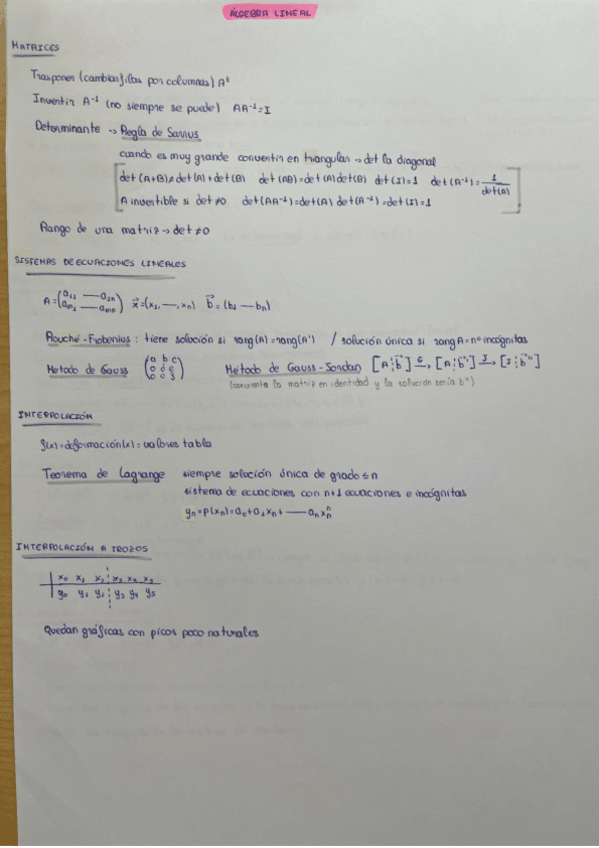 ÁLGEBRA LINEAL
MATRICES
Trasponer (cambiar filas por columnas) Aᵗ
Invertir A⁻¹ (no siempre se puede) AA⁻¹=I
Determinante → Regla de Sarrus
cuando es muy grande convertir en triangular → det la diagonal
det(A+B)≠det(A)+det(B) det(AB)=det(A)det(B) det(I)=1 det(A⁻¹)=1/det(A)
A invertible si det≠0 det(AA⁻¹)=det(A) det(A⁻¹)=det(I)=1
Rango de una matriz → det≠0
SISTEMAS DE ECUACIONES LINEALES
A=(a₁₁ — a₁ₙ
aₘ₁ — aₘₙ) x⃗=(x₁,—,xₙ) b⃗=(b₁ — bₙ)
Rouché-Frobenius: tiene solución si rang(A)=rang(A') / solución única si rang A=nº incógnitas
Metodo de Gauss (a b c
0 d e
0 0 f) Metodo de Gauss-Jordan [A¦b⃗] G→ [A¦b⃗'] J→ [I¦b⃗'']
(convierte la matriz en identidad y la solución sería b'')
INTERPOLACIÓN
f(x)=deformación(x)=valores tabla
Teorema de Lagrange siempre solución única de grado≤n
sistema de ecuaciones con n+1 ecuaciones e incógnitas
yₙ=p(xₙ)=a₀+a₁xₙ+ — aₙxₙⁿ
INTERPOLACIÓN A TROZOS
x₀ x₁ x₂ x₃ x₄ x₅
y₀ y₁ y₂ y₃ y₄ y₅
Quedan gráficas con picos poco naturales